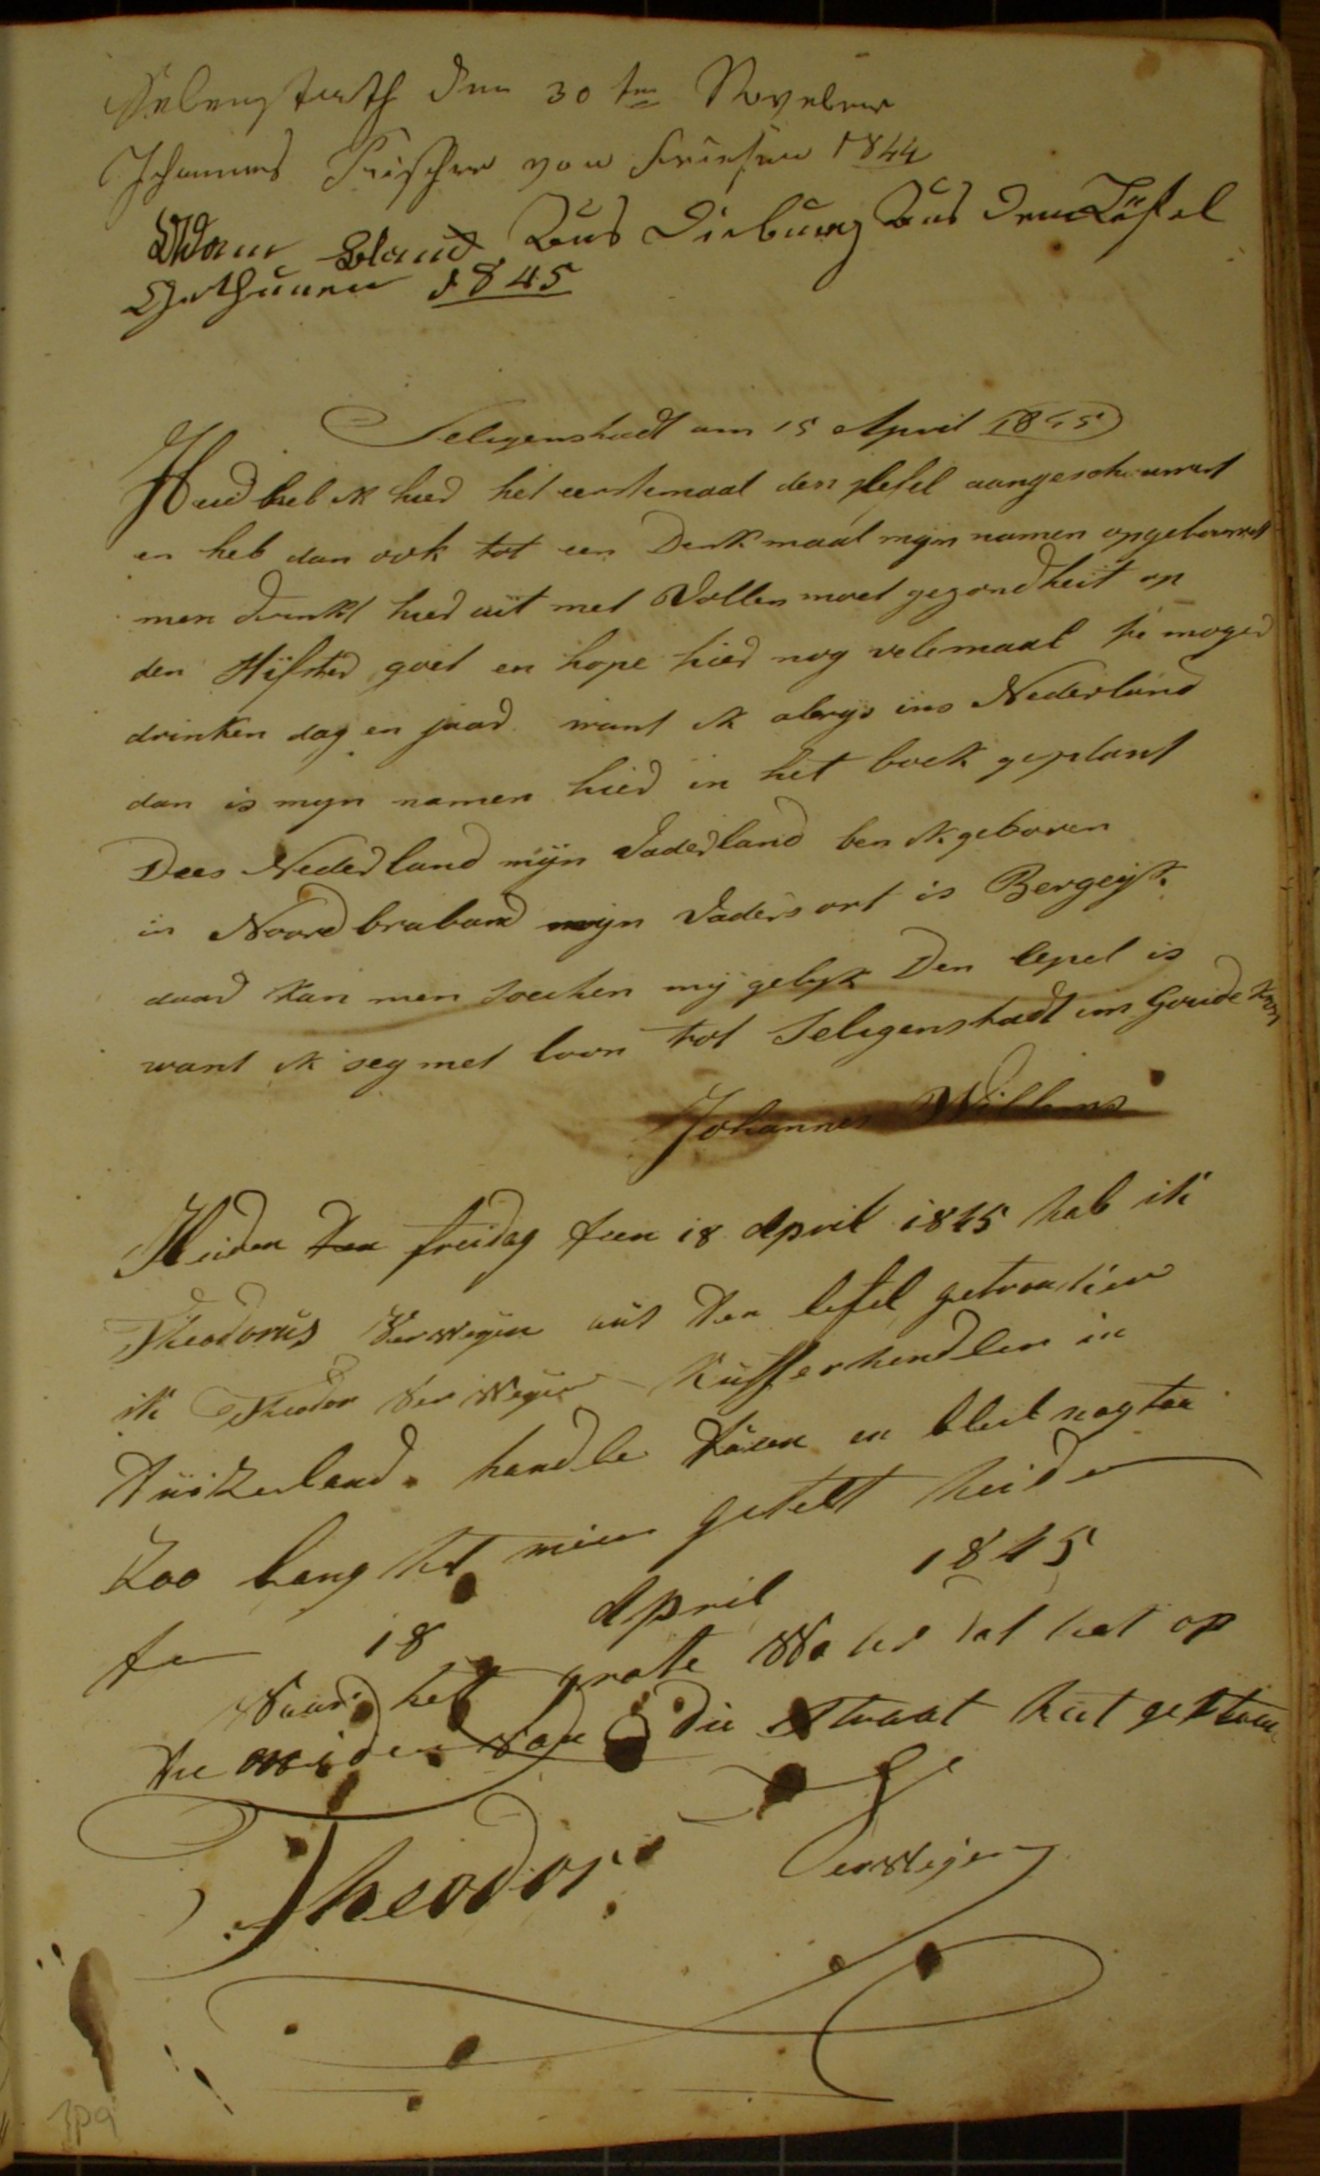 den 30 ten November
Johannes Fischer von 1844
Adam Bland Aus Dieburg Aus dem Löffel
Gethunen 1845
Seligenstadt am 15 April 1845
Heud heb ik hied het eerstemaal den lefel aangeschouwed
en heb dan ook tot een Denkmaal mijn namen
men drinkt hied uit met Vollen moet gezondheit op
den goet en hope hied nog velemaal te moged
drinken dag en jaad want ik ins Nederland
dan is mijn namen hied in het boek geplant
Dees Nederland mijn Vaderland ben ik geboren
in Noordbraband mijn Vaders ort is Bergeijk
daad kan men soeken mij gelyk Den lepel is
want ik seg met loon tot Seligenstadt im Goude kron
Johannes Willems
Heiden den freidag den 18 April 1845 hab ik
Theodorus Verweyen uit den lefel getronken
ik Theodor Verweyen Kufferhendler in
Duitzerland handle in bleib nog
Zoo lang het mein gefelt heiden
den 18 April 1845
Vaar het grote Water dat het op
die van die straat het gestaan
Theodor Verweijen